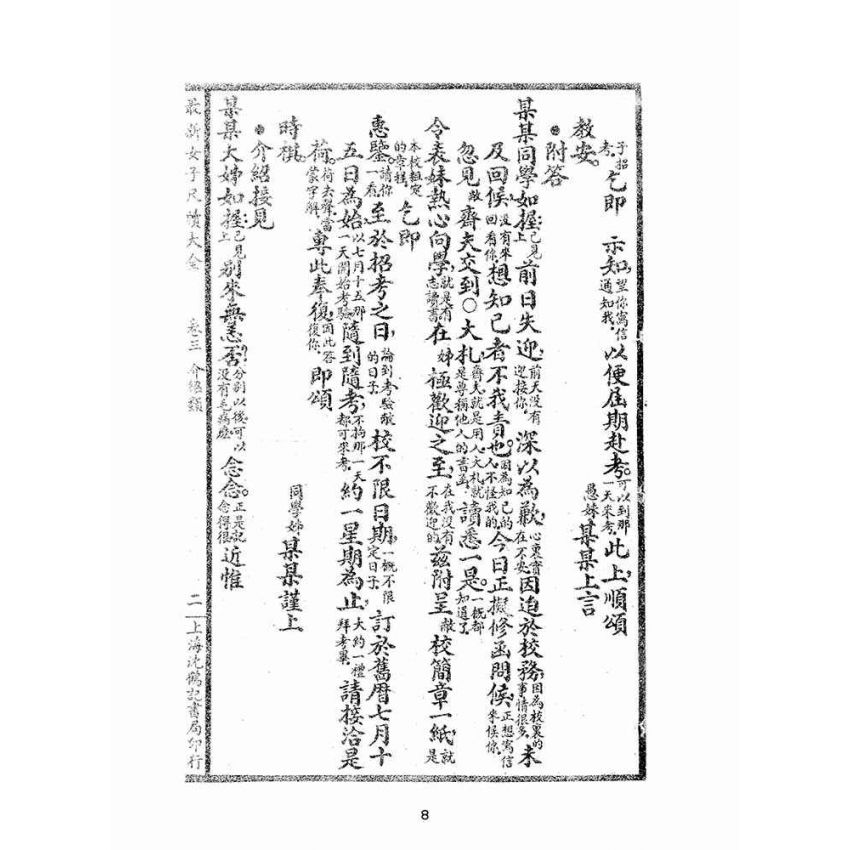 子招考。乞即 示知,望你寫信通知我。以便屆期赴考。可以到那一天來考。此上順頌
教安。 愚妹某某上言
●附答
某某同學如握:已見上前日失迎,前天沒有迎接你。深以為歉,心裏實在不安。因迫於校務,因為校裏的事情很多。未
及回候,沒有來回看你。想知己者不我責也。因為知己的人不怪我的。今日正擬修函問候,正想寫信來候你。
忽見敝齋夫交到○大札,齋夫就是用人大札就是尊稱他人的書函。讀悉一是。一概都知道了
令表妹熱心向學,就是有志讀書在姊極歡迎之至,在我沒有不歡迎的茲附呈敝校簡章一紙,就是
本校組定的章程。乞即
惠鑒。請你一看。至於招考之日,論到考驗的日子。敝校不限日期,一概不限定日子。訂於舊曆七月十
五日為始,以七月十五那一天開始考驗隨到隨考,不拘那一天都可來考。約一星期為止,大約一禮拜考畢。請接洽是
荷。荷去聲當蒙字解。專此奉復,因此答復你。即頌
時祺。 同學姊某某謹上
●介紹接見
某某大姊如握:已見上別來無恙否?分別以後可以沒有毛病麼念念。正是記念得很近惟
最新女子尺牘大全 卷三 介紹類 二 上海沈鶴記書局印行
8